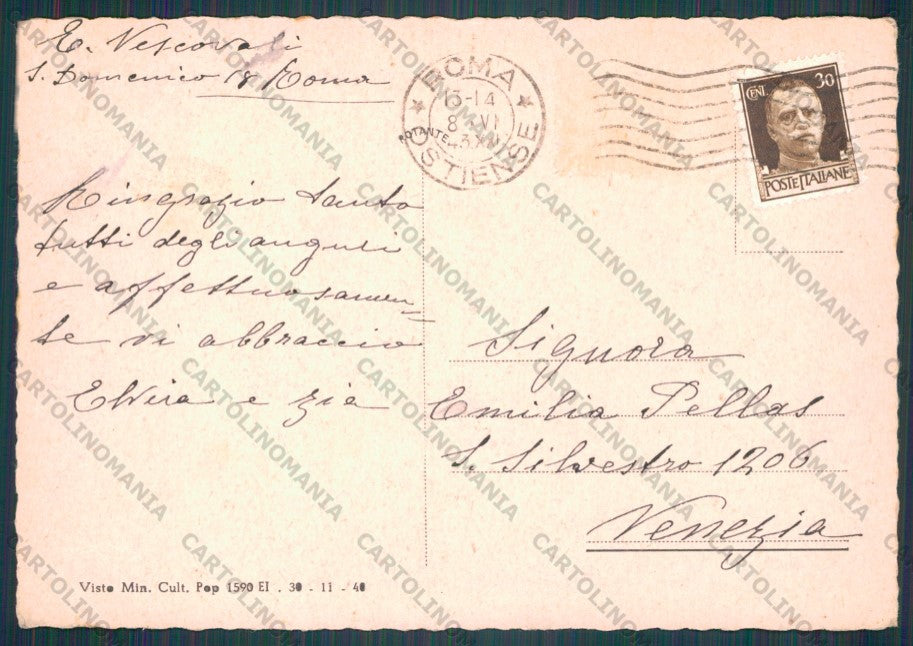 E. Vescovali
S. Domenico 18 Roma
ROMA
13-14
8 VI
43 XXI
OSTIENSE
CENT. 30
POSTE ITALIANE
Ringrazio tanto
tutti degli auguri
e affettuosamen=
te vi abbraccio
Elvira e zia
Signora
Emilia Pellas
S. Silvestro 1206
Venezia
Visto Min. Cult. Pop 1590 EI . 30 - 11 - 40
CARTOLINOMANIA